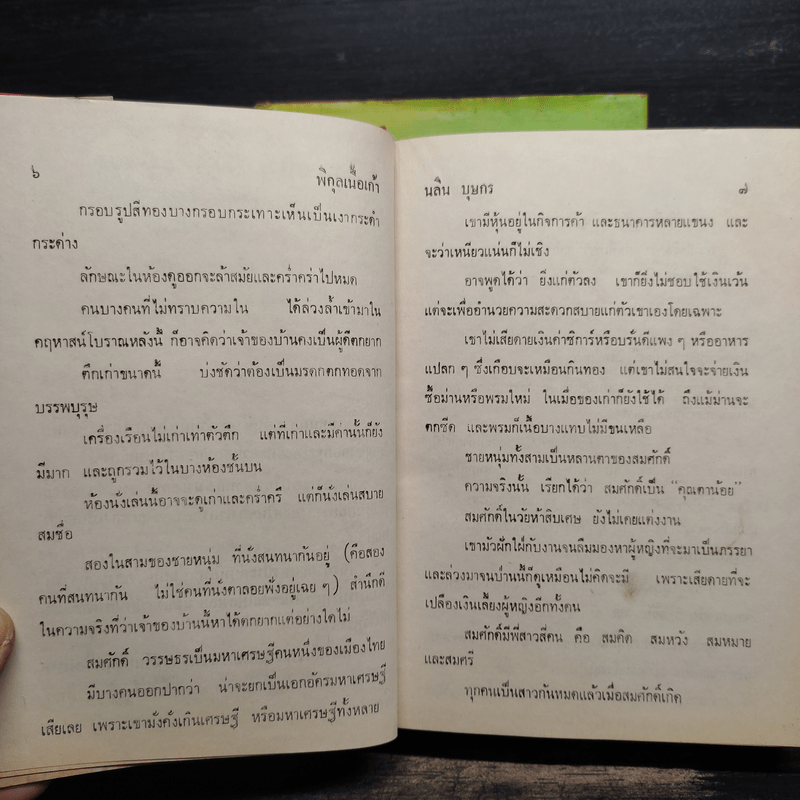 ๖
พิกุลเนื้อเก้า
กรอบรูปสีทองบางกรอบกระเทาะเห็นเป็นเงากระดำ
กระด่าง
ลักษณะในห้องดูออกจะล้าสมัยและคร่ำคร่าไปหมด
คนบางคนที่ไม่ทราบความใน ได้ล่วงล้ำเข้ามาใน
คฤหาสน์โบราณหลังนี้ ก็อาจคิดว่าเจ้าของบ้านคงเป็นผู้ดีตกยาก
ตึกเก่าขนาดนี้ บ่งชัดว่าต้องเป็นมรดกตกทอดจาก
บรรพบุรุษ
เครื่องเรือนไม่เก่าเท่าตัวตึก แต่ที่เก่าและมีค่านั้นก็ยัง
มีมาก และถูกรวมไว้ในบางห้องชั้นบน
ห้องนั่งเล่นนี้อาจจะดูเก่าและคร่ำครึ แต่ก็นั่งเล่นสบาย
สมชื่อ
สองในสามของชายหนุ่ม ที่นั่งสนทนากันอยู่ (คือสอง
คนที่สนทนากัน ไม่ใช่คนที่นั่งตาลอยฟังอยู่เฉย ๆ) สำนึกดี
ในความจริงที่ว่าเจ้าของบ้านนี้หาได้ตกยากแต่อย่างใดไม่
สมศักดิ์ วรรษธรเป็นมหาเศรษฐีคนหนึ่งของเมืองไทย
มีบางคนออกปากว่า น่าจะยกเป็นเอกอัครมหาเศรษฐี
เสียเลย เพราะเขามั่งคั่งเกินเศรษฐี หรือมหาเศรษฐีทั้งหลาย
นลิน บุษกร
๗
เขามีหุ้นอยู่ในกิจการค้า และธนาคารหลายแขนง และ
จะว่าเหนียวแน่นก็ไม่เชิง
อาจพูดได้ว่า ยิ่งแก่ตัวลง เขาก็ยิ่งไม่ชอบใช้เงินเว้น
แต่จะเพื่ออำนวยความสะดวกสบายแก่ตัวเขาเองโดยเฉพาะ
เขาไม่เสียดายเงินค่าซิการ์หรือบรั่นดีแพง ๆ หรืออาหาร
แปลก ๆ ซึ่งเกือบจะเหมือนกินทอง แต่เขาไม่สนใจจะจ่ายเงิน
ซื้อม่านหรือพรมใหม่ ในเมื่อของเก่าก็ยังใช้ได้ ถึงแม้ม่านจะ
ตกซีด และพรมก็เนื้อบางแทบไม่มีขนเหลือ
ชายหนุ่มทั้งสามเป็นหลานตาของสมศักดิ์
ความจริงนั้น เรียกได้ว่า สมศักดิ์เป็น “คุณตาน้อย”
สมศักดิ์ในวัยห้าสิบเศษ ยังไม่เคยแต่งงาน
เขามัวฝักใฝ่กับงานจนลืมมองหาผู้หญิงที่จะมาเป็นภรรยา
และล่วงมาจนป่านนี้ก็ดูเหมือนไม่คิดจะมี เพราะเสียดายที่จะ
เปลืองเงินเลี้ยงผู้หญิงอีกทั้งคน
สมศักดิ์มีพี่สาวสี่คน คือ สมคิด สมหวัง สมหมาย
และสมศรี
ทุกคนเป็นสาวกันหมดแล้วเมื่อสมศักดิ์เกิด